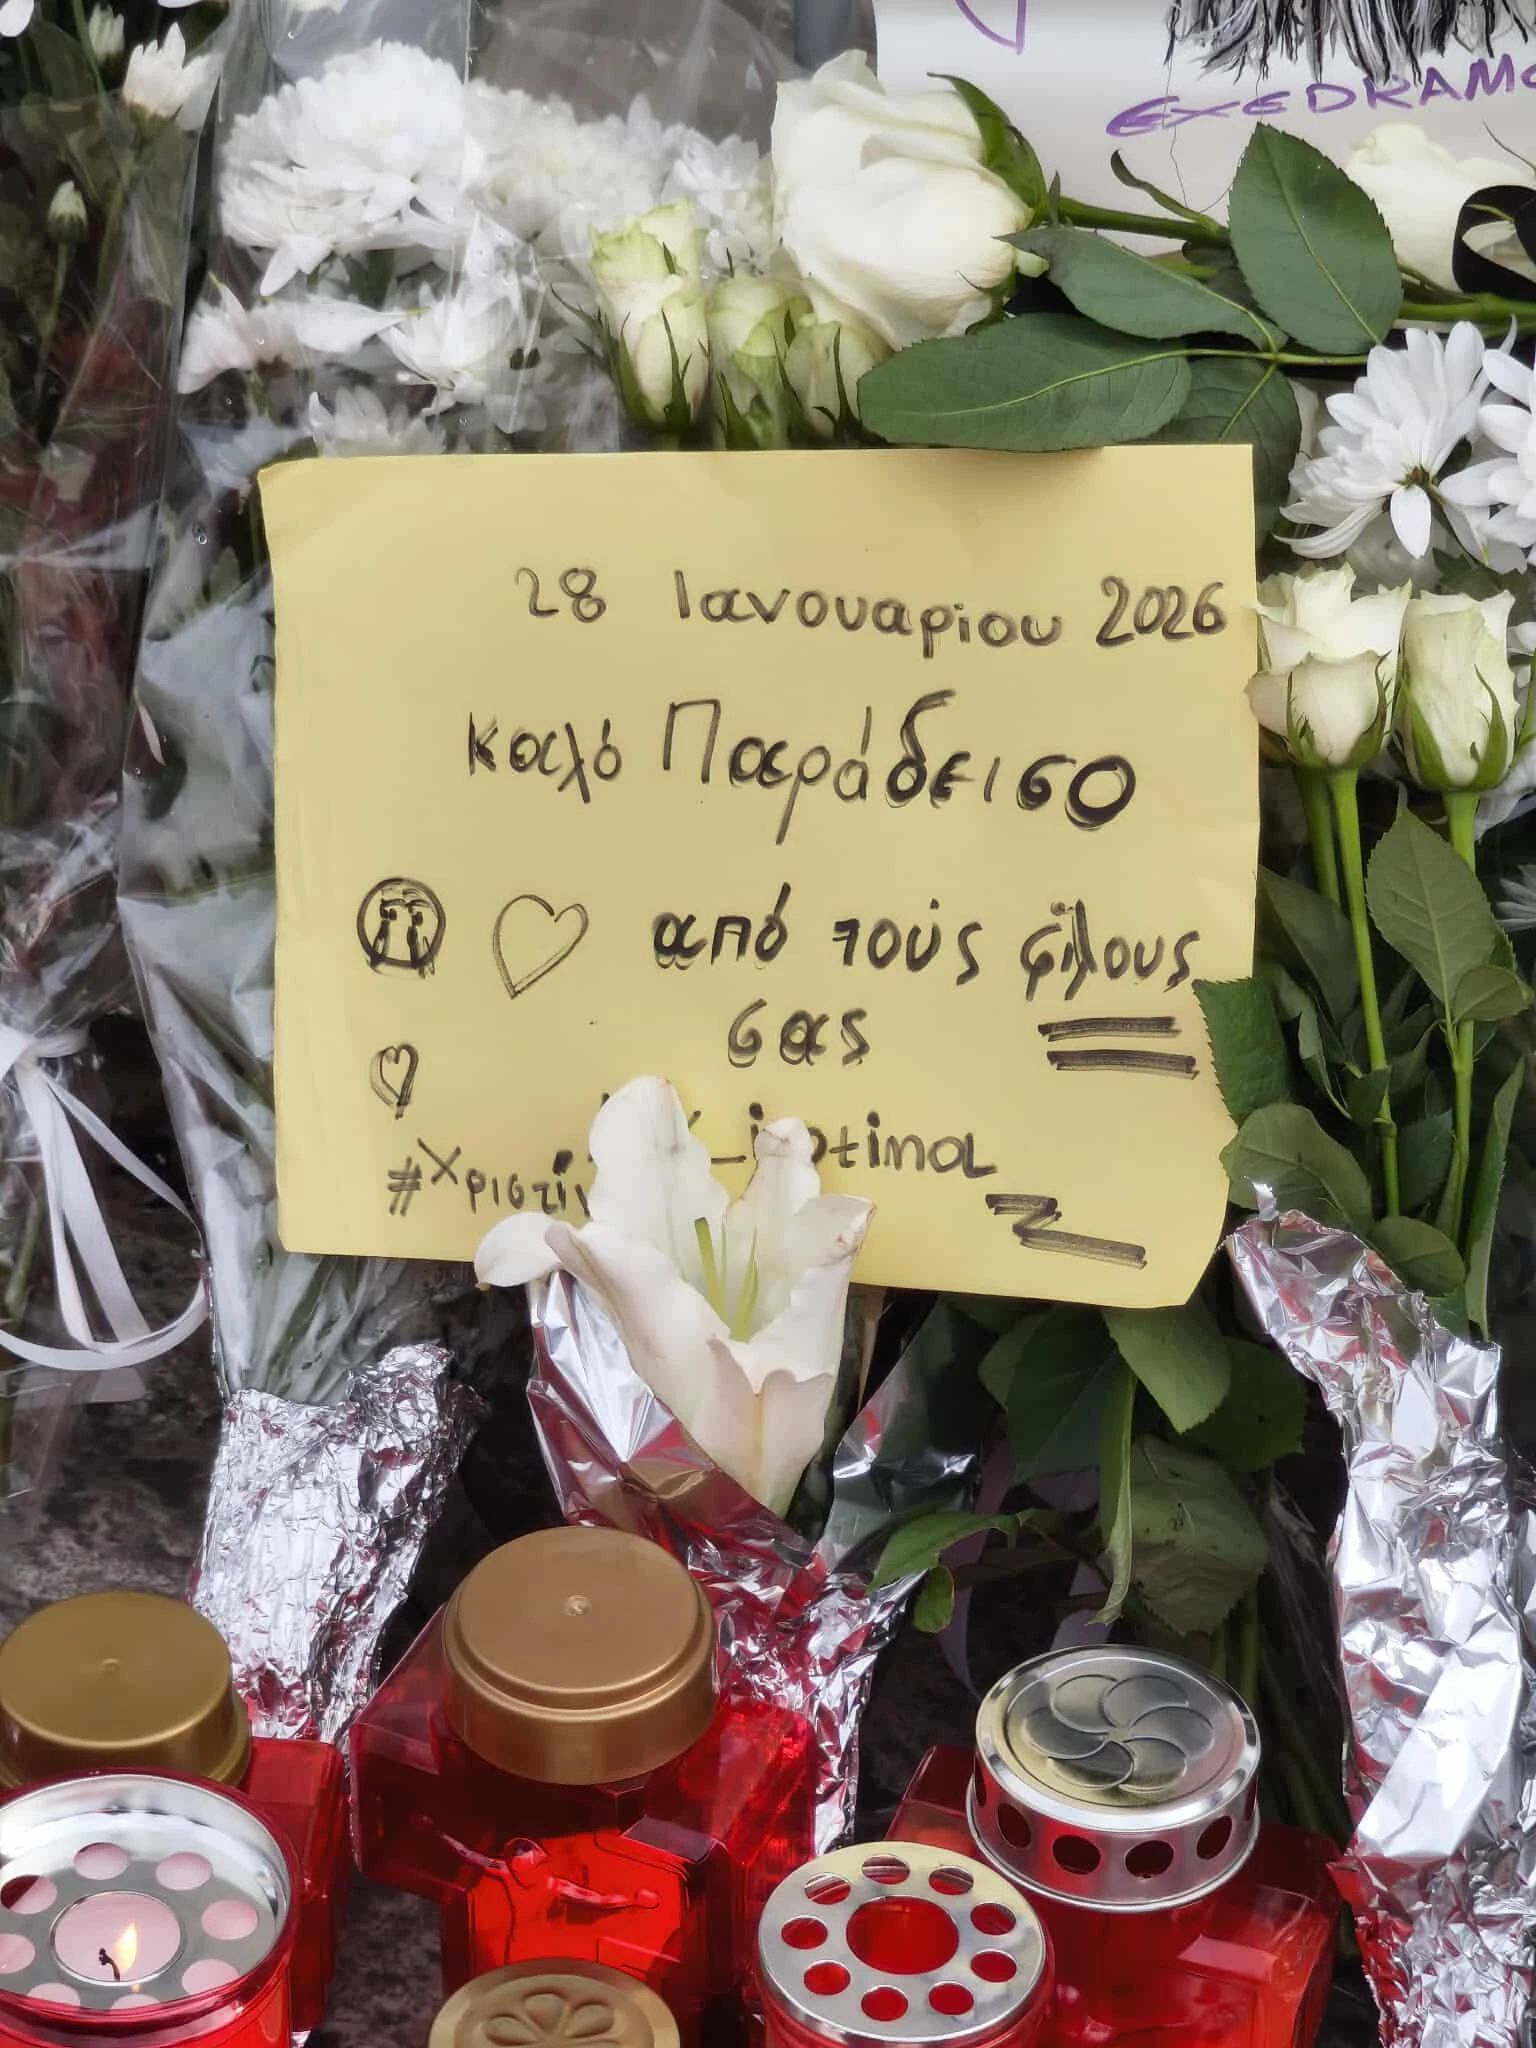 EXEDRAMO
28 Ιανουαρίου 2026
Καλό Παράδεισο
από τούς φίλους
σας
#Χριστίν